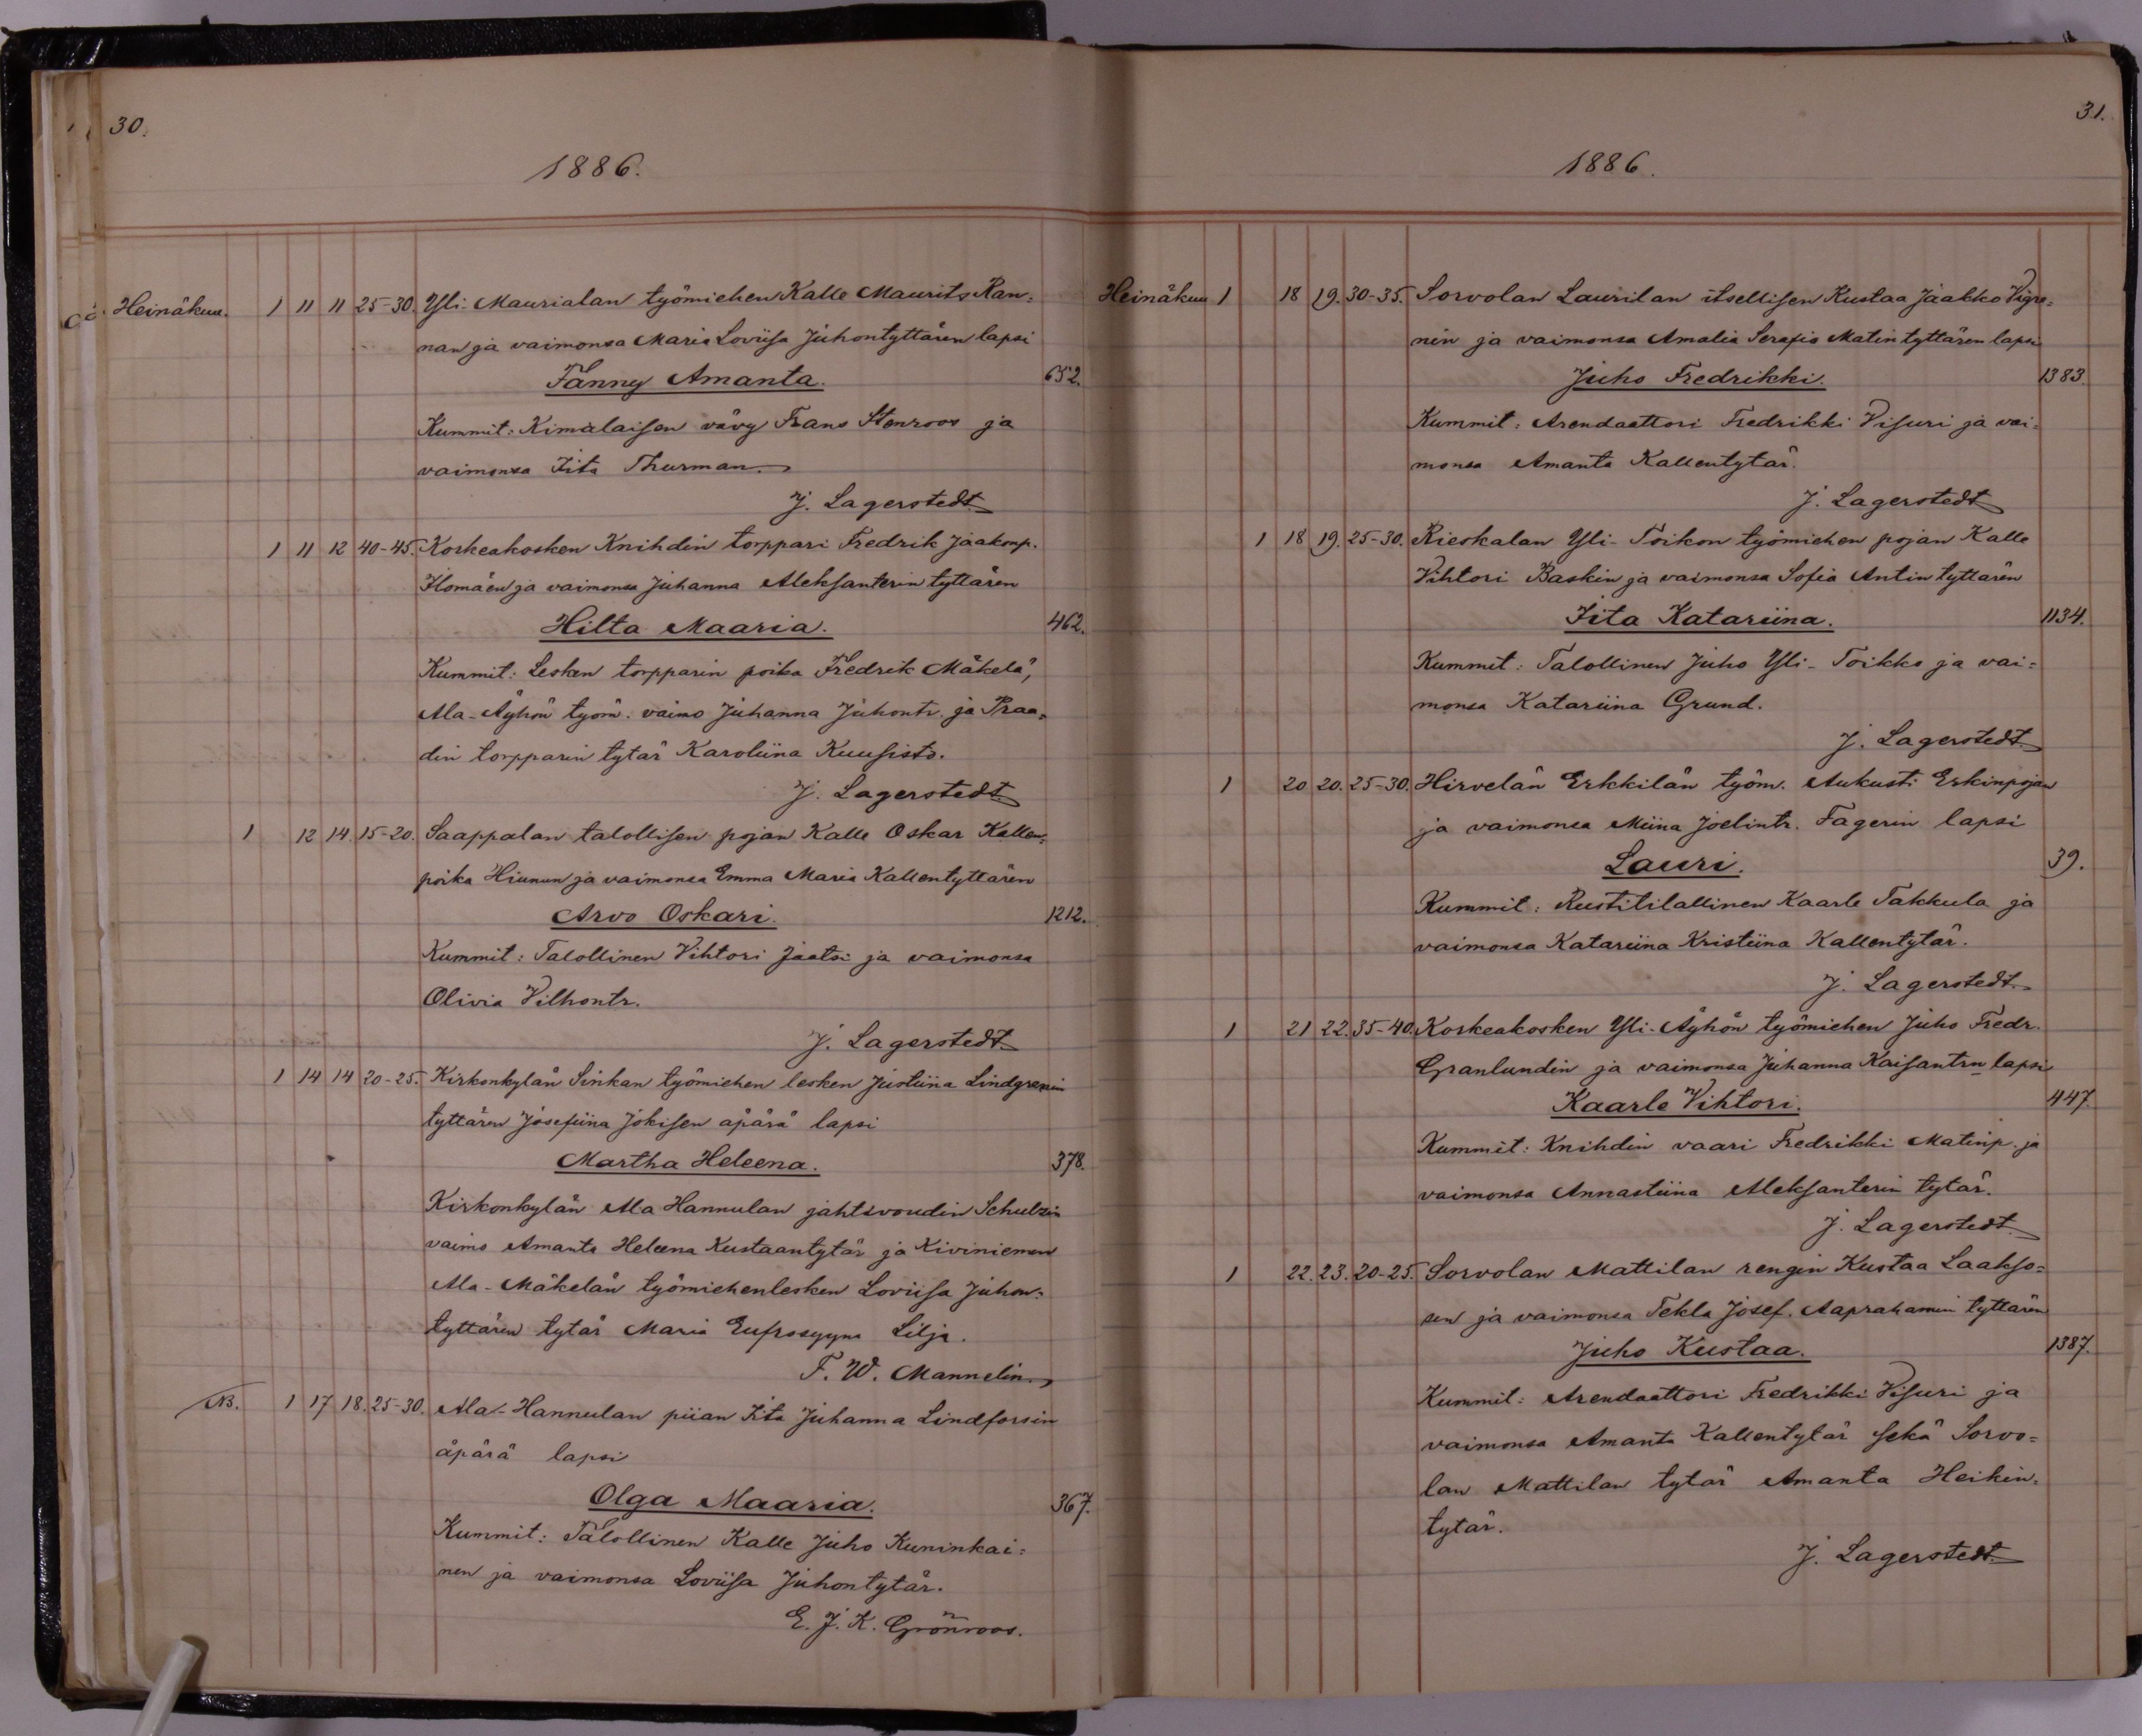 30.
1886.
Heinäkuu. 1 11 11 25-30. Yli-Maurialan työmiehen Kalle Maurits Ran=
nan ja vaimonsa Maria Loviisa Juhontyttären lapsi
Fanny Amanta. 652.
Kummit: Kimalaisen vävy Frans Stenroos ja
vaimonsa Iita Thurman.
J. Lagerstedt
1 11 12 40-45. Korkeakosken Knihdin torppari Fredrik Jaakonp.
Ilomäen ja vaimonsa Juhanna Aleksanterin tyttären
Hilta Maaria. 462.
Kummit: Lesken torpparin poika Fredrik Mäkelä,
Ala-Äyhön työm. vaimo Juhanna Juhontr. ja Praa=
din torpparin tytär Karoliina Kuusisto.
J. Lagerstedt.
1 12 14. 15-20. Saappalan talollisen pojan Kalle Oskar Kallen=
poika Hiunun ja vaimonsa Emma Maria Kallentyttären
Arvo Oskari. 1212.
Kummit: Talollinen Vihtori Jaatsi ja vaimonsa
Olivia Vilhontr.
J. Lagerstedt
1 14 14 20-25. Kirkonkylän Sinkan työmiehen lesken Justiina Lindgrenin
tyttären Josefiina Jokisen äpärä lapsi
Martha Heleena. 378.
Kirkonkylän Ala Hannulan jahtivoudin Schulzin
vaimo Amanta Heleena Kustaantytär ja Kiviniemen
Ala-Mäkelän työmiehenlesken Loviisa Juhon=
tyttären tytär Maria Eufrosyyna Lilja.
F. W. Mannelin.
NB. 1 17 18. 25-30. Ala-Hannulan piian Iita Juhanna Lindforsin
äpärä lapsi
Olga Maaria. 367.
Kummit: Talollinen Kalle Juho Kuninkai=
nen ja vaimonsa Loviisa Juhontytär.
E. J. K. Grönroos.
31.
1886.
Heinäkuu 1 18 19. 30-35. Sorvolan Laurilan itsellisen Kustaa Jaakko Vigre=
nin ja vaimonsa Amalia Serafia Matin tyttären lapsi
Juho Fredrikki. 1383.
Kummit: Arendaattori Fredrikki Visuri ja vai=
monsa Amanta Kallentytär.
J. Lagerstedt
1 18 19. 25-30. Rieskalan Yli-Toikon työmiehen pojan Kalle
Vihtori Baskin ja vaimonsa Sofia Antin tyttären
Iita Katariina. 1134.
Kummit: Talollinen Juho Yli-Toikko ja vai=
monsa Katariina Grund.
J. Lagerstedt.
1 20 20. 25-30. Hirvelän Erkkilän työm. Aukusti Erkinpojan
ja vaimonsa Miina Joelintr. Fagerin lapsi
Lauri. 39.
Kummit: Rustitilallinen Kaarle Takkula ja
vaimonsa Katariina Kristiina Kallentytär.
J. Lagerstedt.
1 21 22. 35-40. Korkeakosken Yli-Äyhön työmiehen Juho Fredr.
Granlundin ja vaimonsa Juhanna Kaisantrn lapsi
Kaarle Vihtori. 447.
Kummit: Knihdin vaari Fredrikki Matinp. ja
vaimonsa Annastiina Aleksanterin tytär.
J. Lagerstedt
1 22. 23. 20-25. Sorvolan Mattilan rengin Kustaa Laakso=
sen ja vaimonsa Tekla Josef. Aaprahamin tyttären
Juho Kustaa. 1387.
Kummit: Arendaattori Fredrikki Visuri ja
vaimonsa Amanta Kallentytär sekä Sorvo=
lan Mattilan tytär Amanta Heikin=
tytär.
J. Lagerstedt.